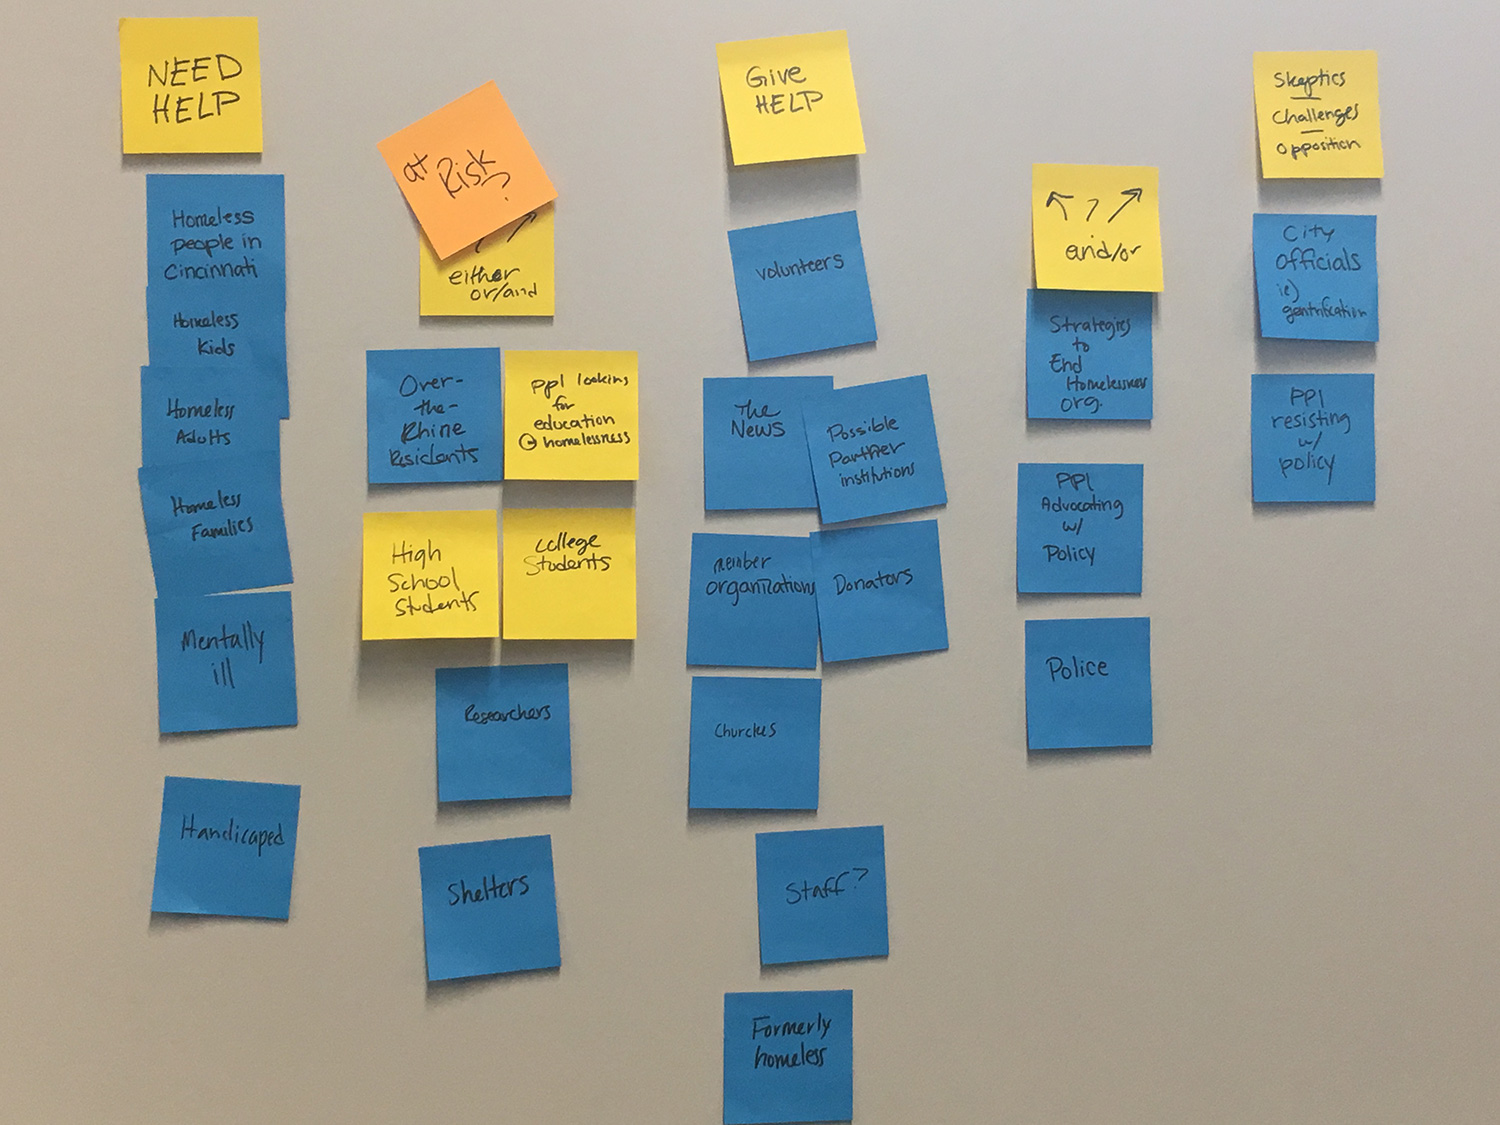 NEED
HELP
Homeless
people in
Cincinnati
Homeless
Kids
Homeless
Adults
Homeless
Families
Mentally
ill
Handicaped
at
Risk?
either
or/and
Over-
the-
Rhine
Residents
ppl looking
for
education
@ homelessness
High
School
Students
college
Students
Researchers
Shelters
Give
HELP
volunteers
The
News
Possible
Partner
institutions
member
organizations
Donators
Churches
Staff?
Formerly
homeless
?
and/or
Strategies
to
End
Homelessness
org.
PPl
Advocating
w/
Policy
Police
Skeptics
Challenges
opposition
City
officials
ie)
gentrification
PPl
resisting
w/
policy